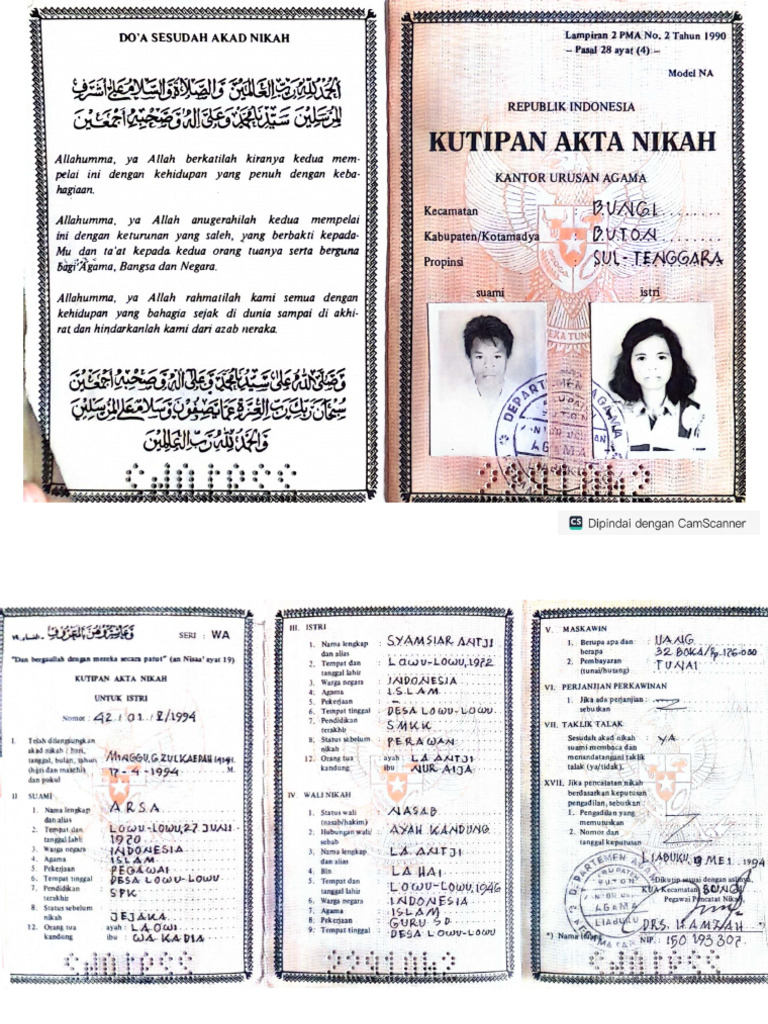 DO'A SESUDAH AKAD NIKAH
اَلْحَمْدُ لِلّٰهِ رَبِّ الْعَالَمِيْنَ وَالصَّلَاةُ وَالسَّلَامُ عَلَى أَشْرَفِ
الْمُرْسَلِيْنَ سَيِّدِنَا مُحَمَّدٍ وَعَلَى اٰلِهِ وَصَحْبِهِ أَجْمَعِيْنَ
Allahumma, ya Allah berkatilah kiranya kedua mem-
pelai ini dengan kehidupan yang penuh dengan keba-
hagiaan.
Allahumma, ya Allah anugerahilah kedua mempelai
ini dengan keturunan yang saleh, yang berbakti kepada-
Mu dan ta'at kepada kedua orang tuanya serta berguna
bagi Agama, Bangsa dan Negara.
Allahumma, ya Allah rahmatilah kami semua dengan
kehidupan yang bahagia sejak di dunia sampai di akhi-
rat dan hindarkanlah kami dari azab neraka.
وَصَلَّى اللّٰهُ عَلَى سَيِّدِنَا مُحَمَّدٍ وَعَلَى اٰلِهِ وَصَحْبِهِ أَجْمَعِيْنَ
سُبْحَانَ رَبِّكَ رَبِّ الْعِزَّةِ عَمَّا يَصِفُوْنَ وَسَلَامٌ عَلَى الْمُرْسَلِيْنَ
وَالْحَمْدُ لِلّٰهِ رَبِّ الْعَالَمِيْنَ
Lampiran 2 PMA No. 2 Tahun 1990
– Pasal 28 ayat (4) –
Model NA
REPUBLIK INDONESIA
KUTIPAN AKTA NIKAH
KANTOR URUSAN AGAMA
Kecamatan : BUNGI
Kabupaten/Kotamadya : BUTON
Propinsi : SUL-TENGGARA
suami istri
DEPARTEMEN AGAMA
CS Dipindai dengan CamScanner
SERI : WA
"Dan bergaullah dengan mereka secara patut" (an Nisaa' ayat 19)
KUTIPAN AKTA NIKAH
UNTUK ISTRI
Nomor : 42/01/V/1994
I. Telah dilangsungkan
akad nikah : hari,
tanggal, bulan, tahun
(hijri dan masehi)
dan pukul
MINGGU,
17-4-1994 M.
II SUAMI
1. Nama lengkap dan alias : ARSA
2. Tempat dan tanggal lahir : LOWU-LOWU, 27 JUNI 1970
3. Warga negara : INDONESIA
4. Agama : ISLAM
5. Pekerjaan : PEGAWAI
6. Tempat tinggal : DESA LOWU-LOWU
7. Pendidikan terakhir : SPK
8. Status sebelum nikah : JEJAKA
12. Orang tua kandung ayah : LA OWI
ibu : WA KADIA
III. ISTRI
1. Nama lengkap dan alias : SYAMSIAR ANTJI
2. Tempat dan tanggal lahir : LOWU-LOWU, 1972
3. Warga negara : INDONESIA
4. Agama : ISLAM
5. Pekerjaan : -
6. Tempat tinggal : DESA LOWU-LOWU
7. Pendidikan terakhir : SMKK
8. Status sebelum nikah : PERAWAN
12. Orang tua kandung ayah : LA ANTJI
ibu : NUR AIJA
IV. WALI NIKAH
1. Status wali (nasab/hakim) : NASAB
2. Hubungan wali/ sebab : AYAH KANDUNG
3. Nama lengkap dan alias : LA ANTJI
4. Bin : LA HAI
5. Tempat dan tanggal lahir : LOWU-LOWU, 1946
6. Warga negara : INDONESIA
7. Agama : ISLAM
8. Pekerjaan : GURU SD
9. Tempat tinggal : DESA LOWU-LOWU
V. MASKAWIN
1. Berupa apa dan berapa : UANG 32 BOKA/Rp.176.000
2. Pembayaran (tunai/hutang) : TUNAI
VI. PERJANJIAN PERKAWINAN
1. Jika ada perjanjian sebutkan :
VII. TAKLIK TALAK
Sesudah akad nikah
suami membaca dan
menandatangani taklik
talak (ya/tidak). : YA
XVII. Jika pencatatan nikah
berdasarkan keputusan
pengadilan, sebutkan :
1. Pengadilan yang memutuskan
2. Nomor dan tanggal keputusan
LIABUKU, 9 MEI 1994
Dikutip sesuai dengan aslinya
KUA Kecamatan BUNGI
Pegawai Pencatat Nikah
DRS. HAMZAH
*) Nama
NIP. : 150 193 307